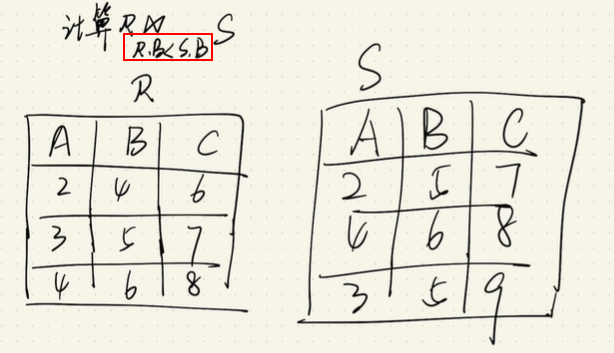 计算 R ⋈ S
R.B<S.B
R
A B C
2 4 6
3 5 7
4 6 8
S
A B C
2 5 7
4 6 8
3 5 9